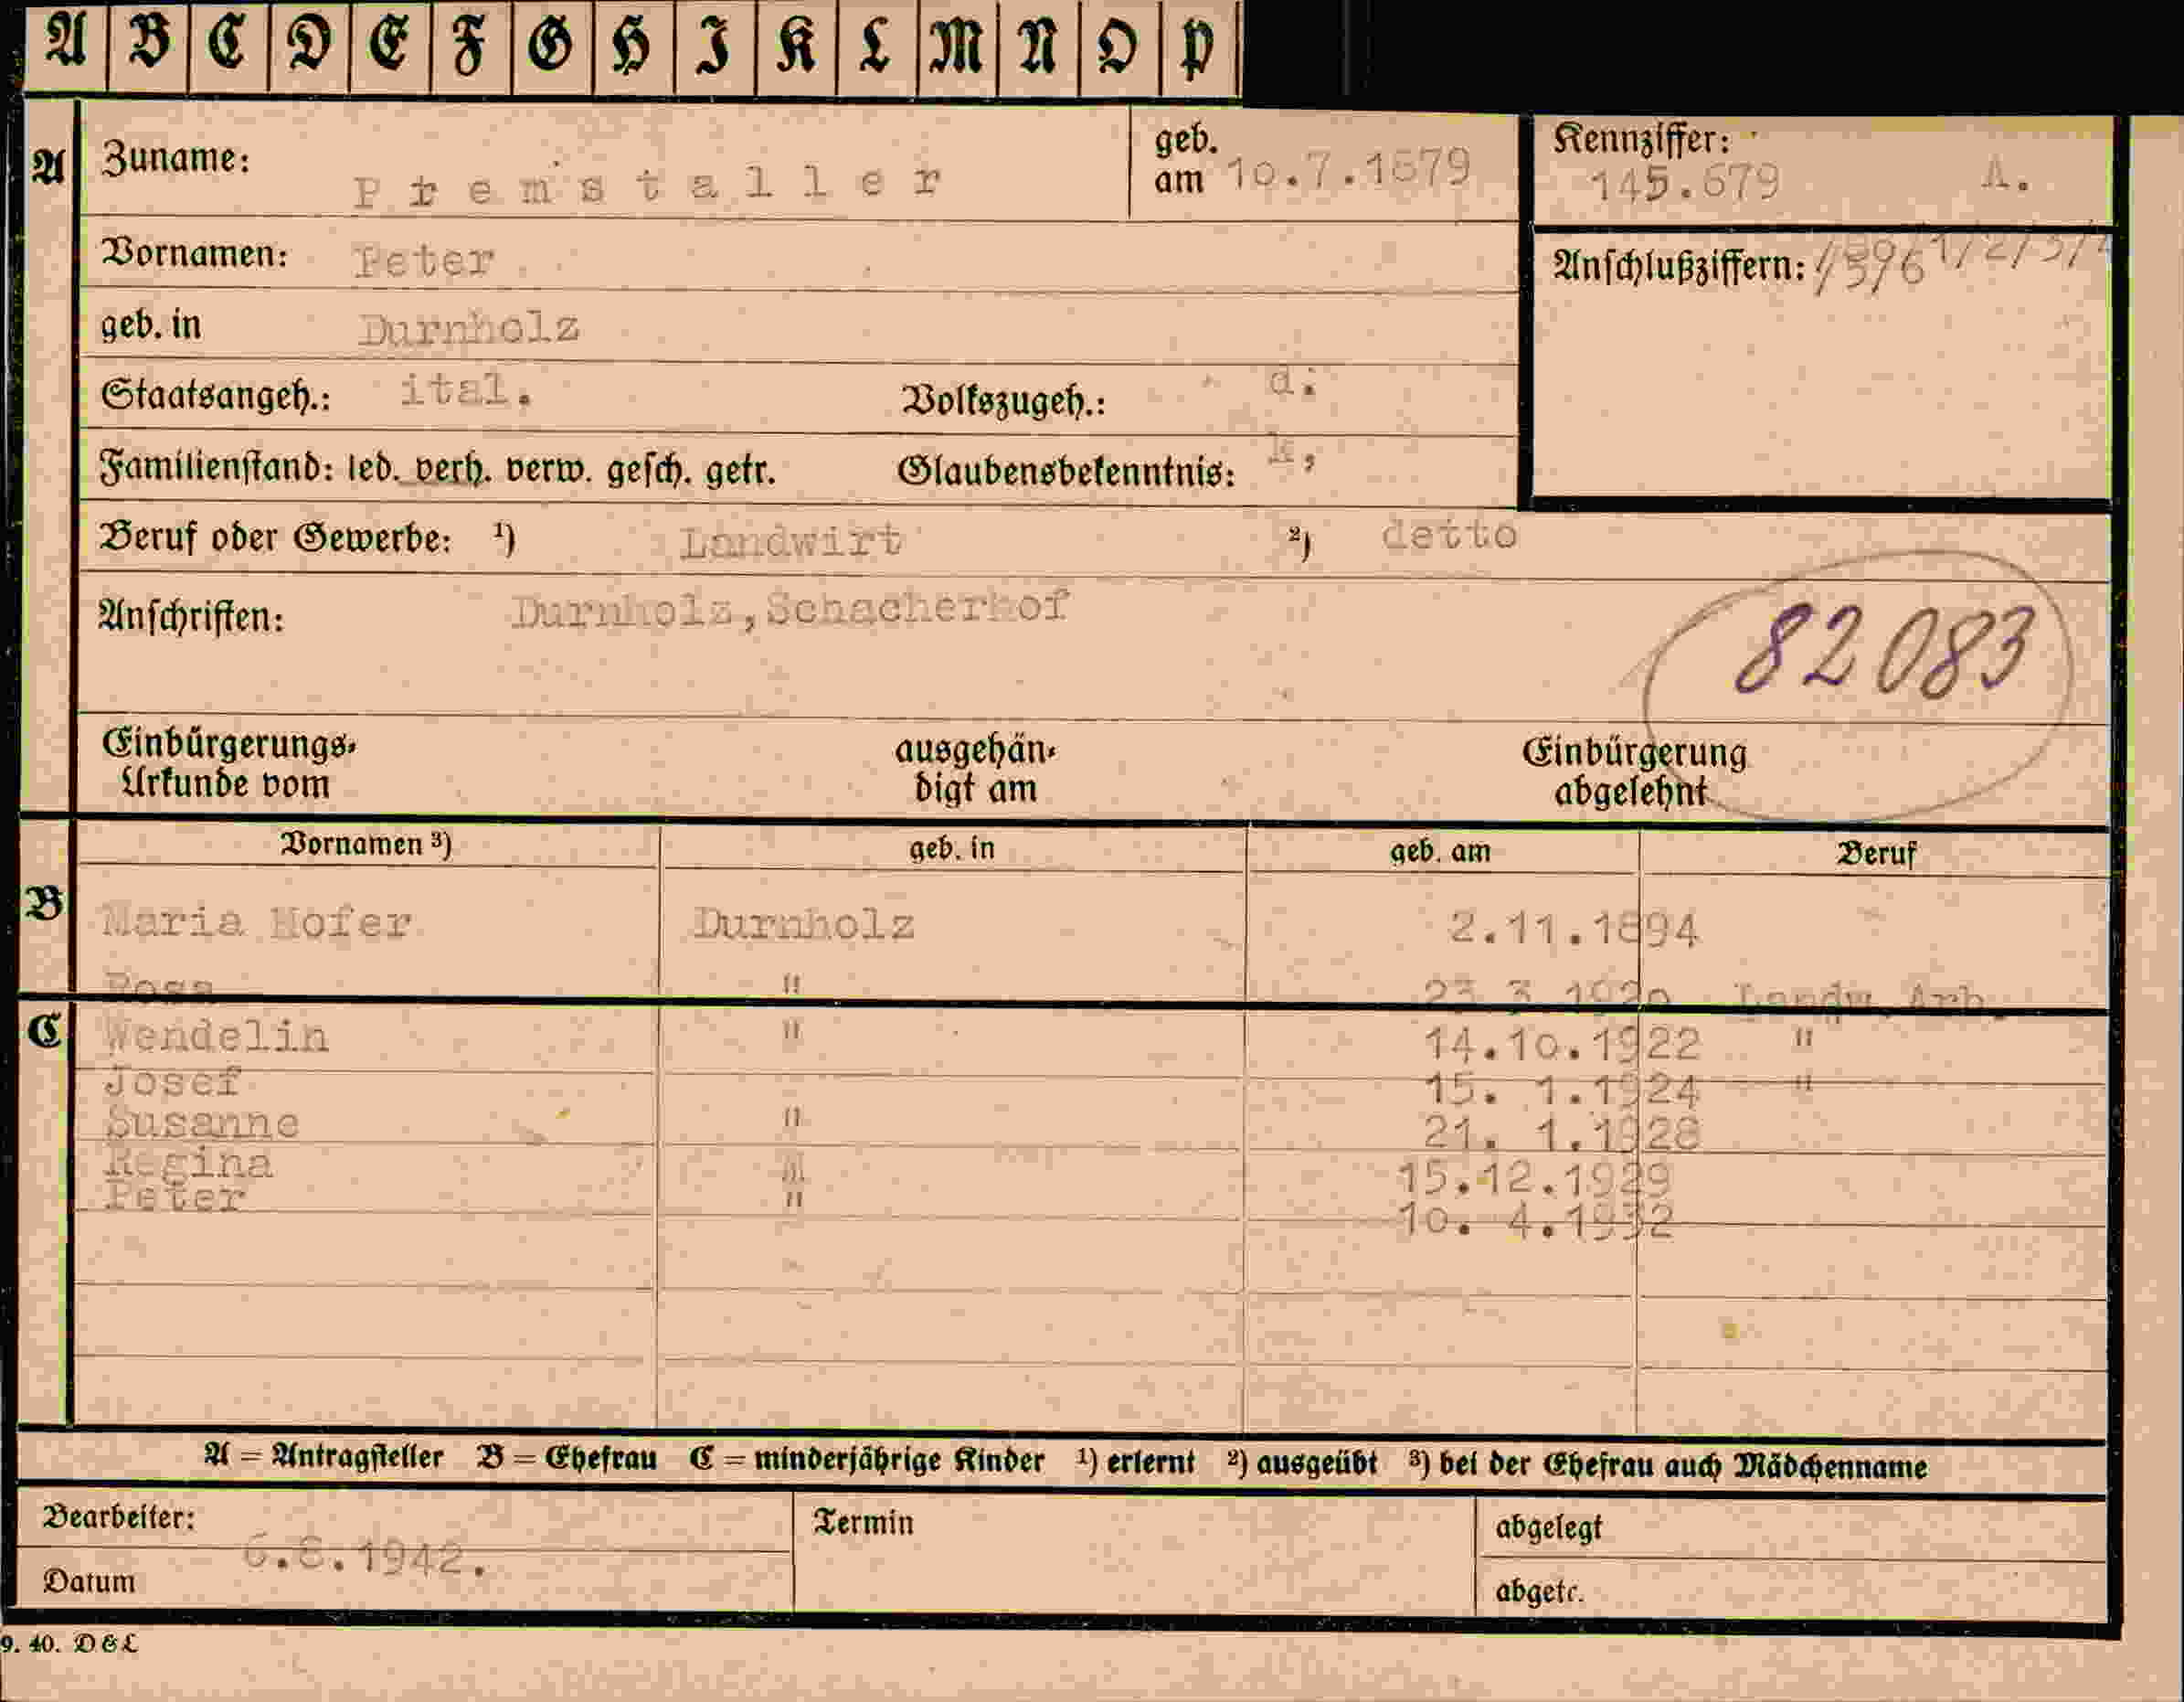 A B C D E F G H I K L M N O P
A Zuname: Premstaller geb. am 10.7.1879 Kennziffer: 145.679 A.
Vornamen: Peter Anschlußziffern:
geb. in Durnholz
Staatsangeh.: ital. Volkszugeh.: d.
Familienstand: led. verh. verw. gesch. getr. Glaubensbekenntnis: k,
Beruf oder Gewerbe: ¹) Landwirt ²) detto
Anschriften: Durnholz,Schacherhof
82083
Einbürgerungs-Urkunde vom ausgehändigt am Einbürgerung abgelehnt
Vornamen ³) geb. in geb. am Beruf
B Maria Hofer Durnholz 2.11.1894
Rosa " 23 3 1920 Landw. Arb.
C Wendelin " 14.10.1922 "
Josef 15. 1.1924 "
Susanne " 21. 1.1928
Regina " 15.12.1929
Peter " 10. 4.1932
A = Antragsteller B = Ehefrau C = minderjährige Kinder ¹) erlernt ²) ausgeübt ³) bei der Ehefrau auch Mädchenname
Bearbeiter: Termin abgelegt
6.8.1942.
Datum abgetr.
9. 40. D & L